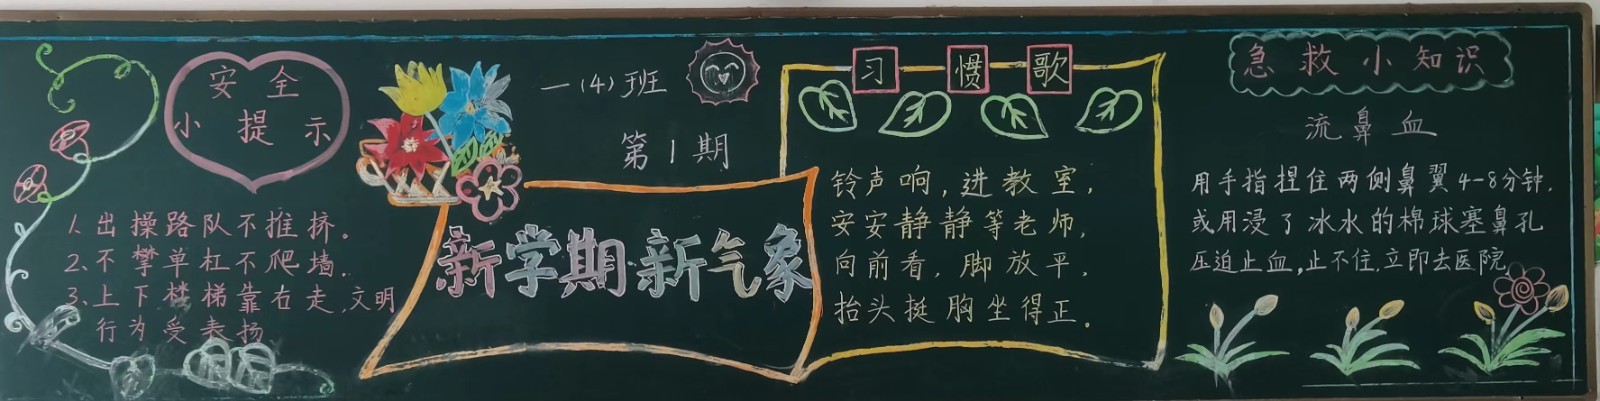 安全
小提示
1.出操路队不推挤。
2.不攀单杠不爬墙.
3.上下楼梯靠右走,文明
行为受表扬
一(4)班
第1期
新学期·新气象
习惯歌
铃声响,进教室,
安安静静等老师,
向前看,脚放平,
抬头挺胸坐得正.
急救小知识
流鼻血
用手指捏住两侧鼻翼4-8分钟.
或用浸了冰水的棉球塞鼻孔
压迫止血,止不住.立即去医院.